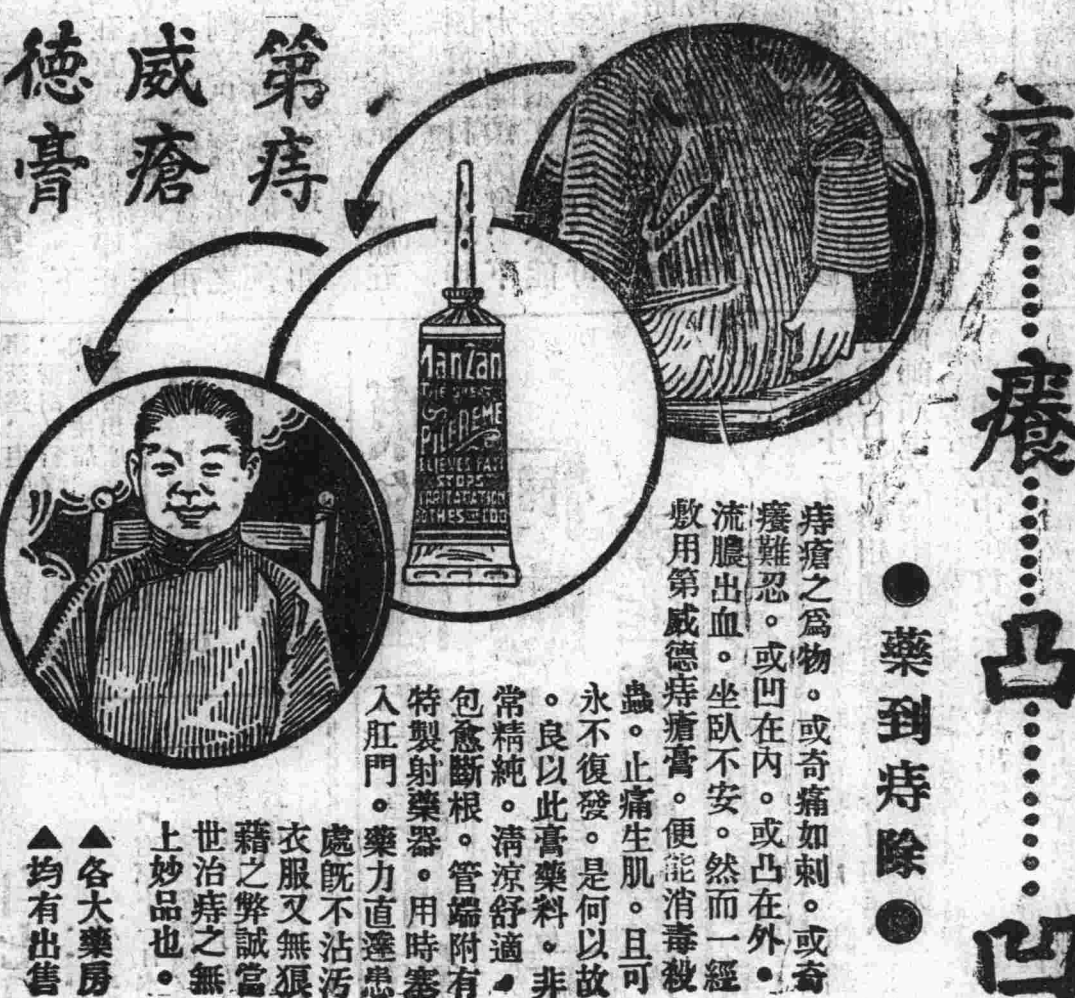 痛……癢……凸……凹
●藥到痔除●
第威德
痔瘡膏
ManZan
THE GREAT
PILE REMEDY
RELIEVES PAIN
STOPS
IRRITATION
痔瘡之爲物。或奇痛如刺。或奇
癢難忍。或凹在內。或凸在外。
流膿出血。坐臥不安。然而一經
敷用第威德痔瘡膏。便能消毒殺
蟲。止痛生肌。且可
永不復發。是何以故
。良以此膏藥料。非
常精純。淸涼舒適。
包愈斷根。管端附有
特製射藥器。用時塞
入肛門。藥力直達患
處旣不沾汚
衣服又無狼
藉之弊誠當
世治痔之無
上妙品也。
▲各大藥房
▲均有出售